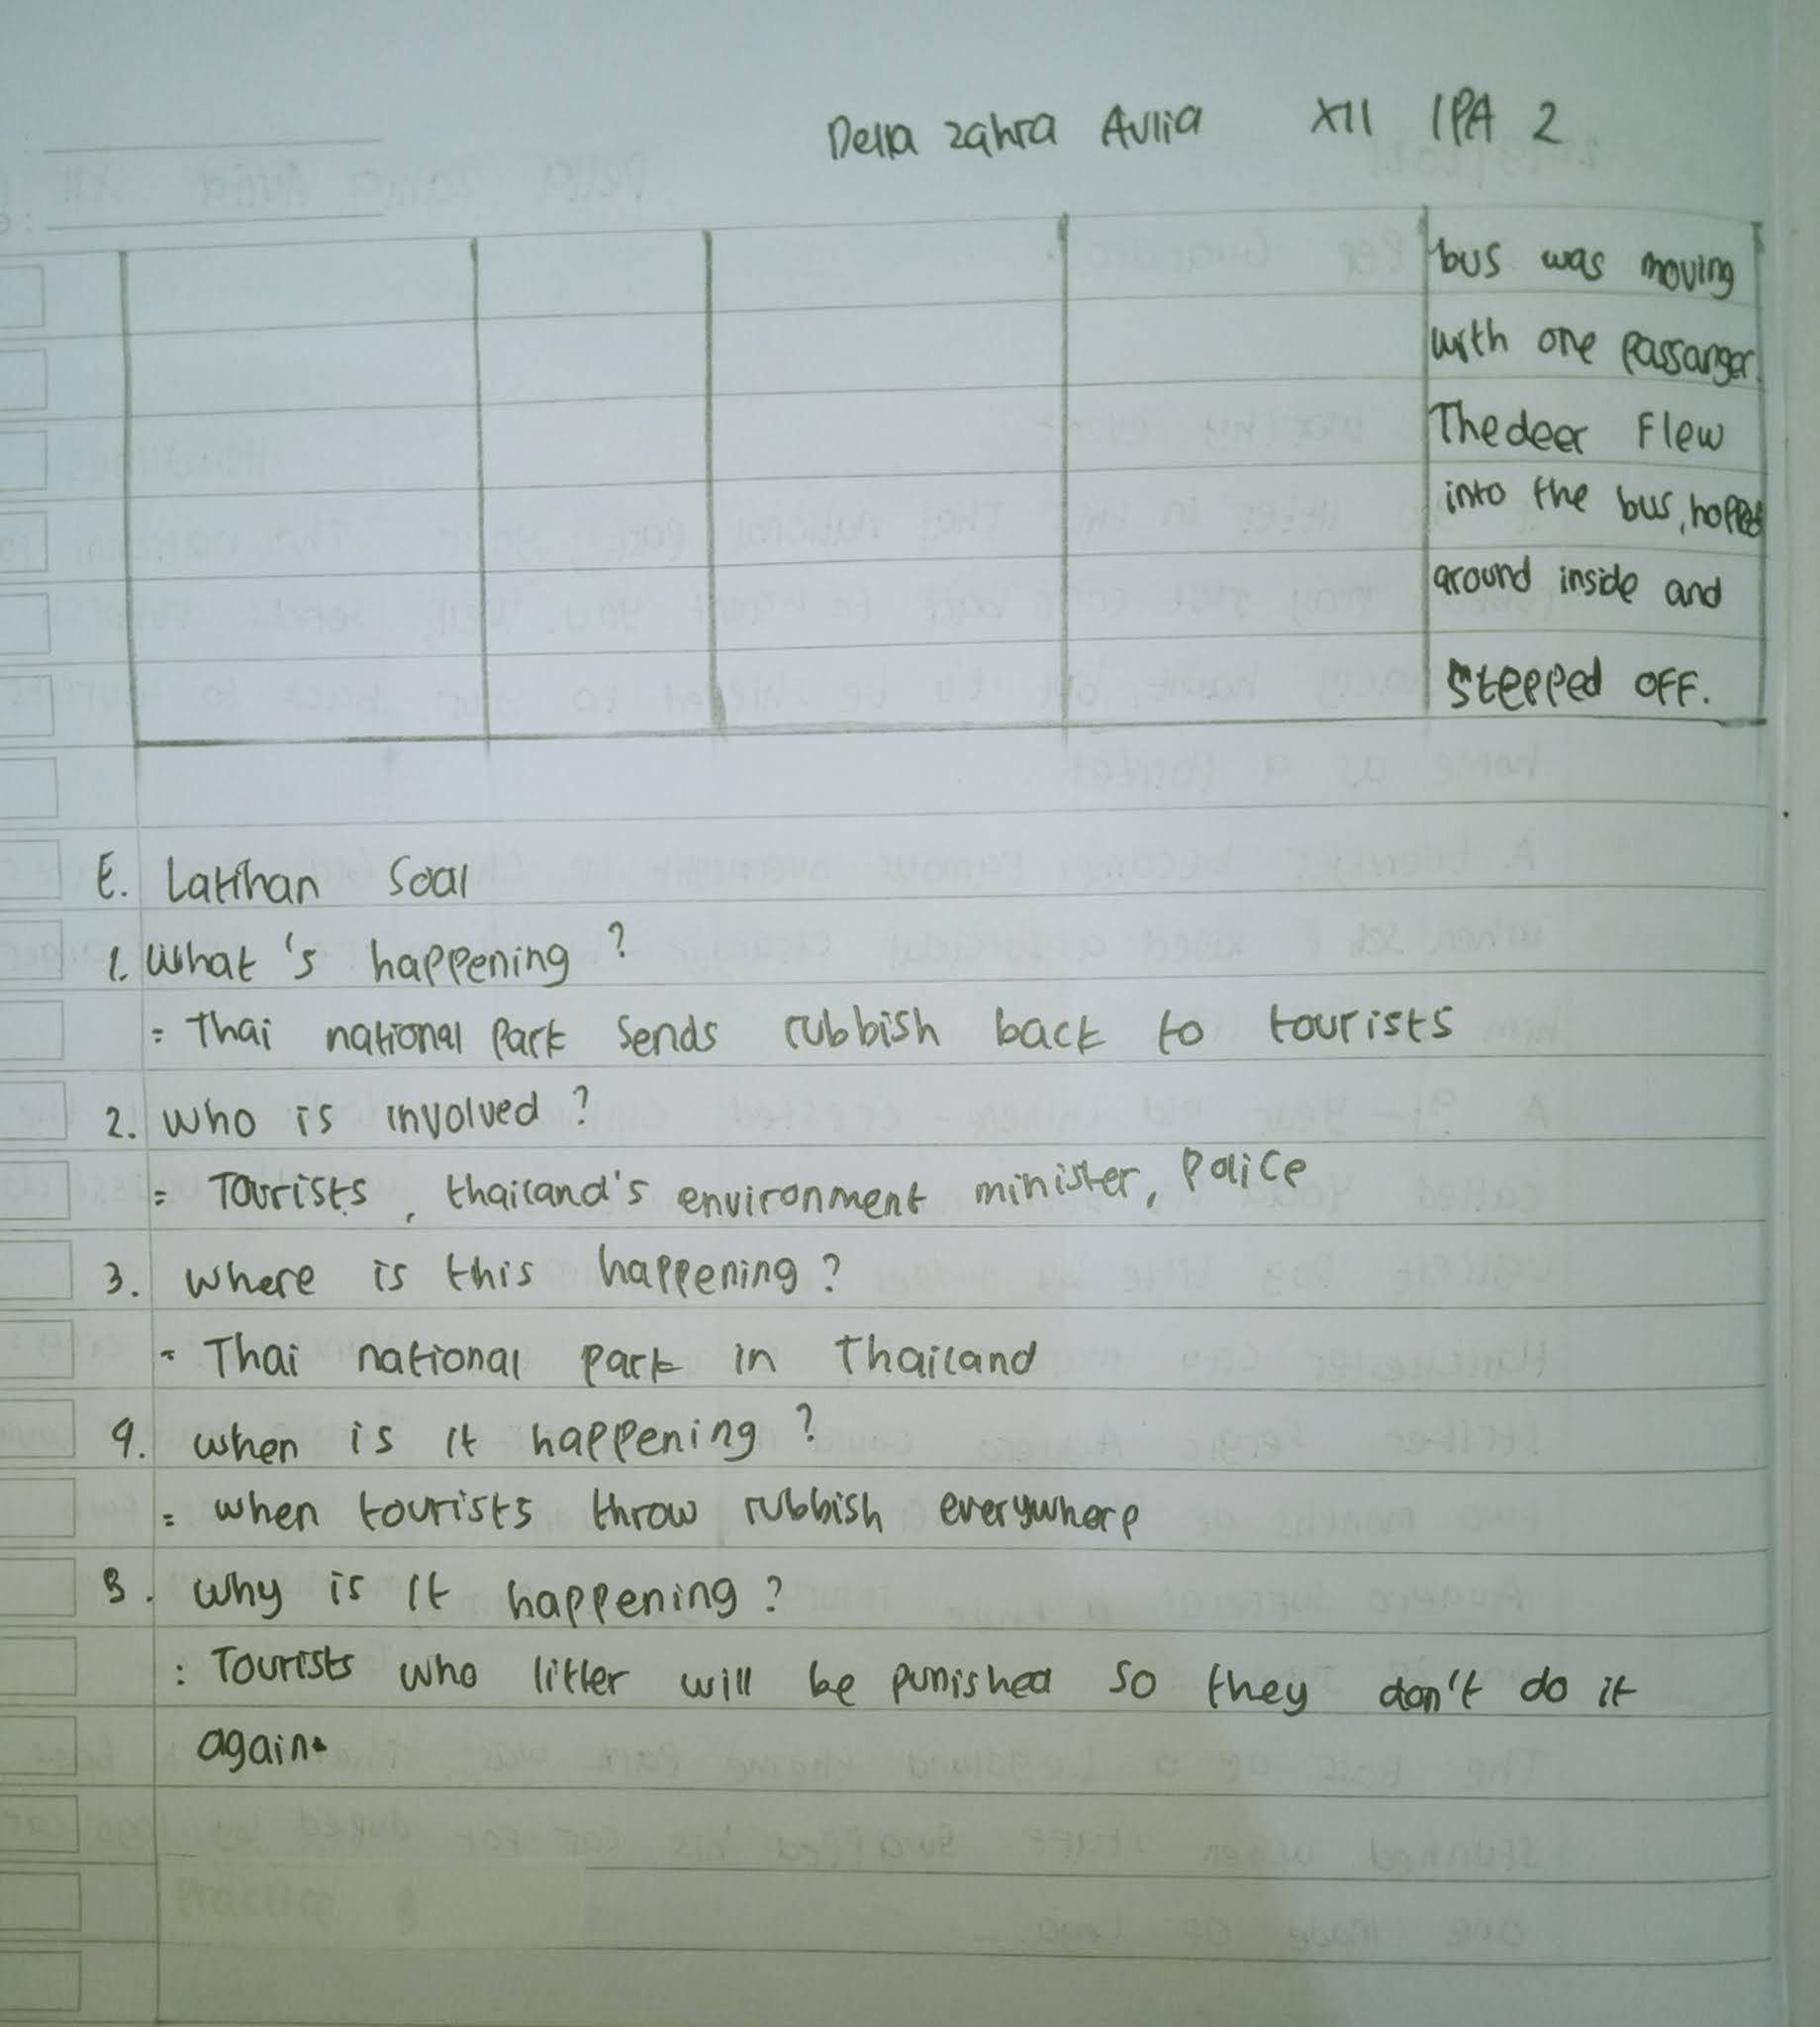 Della zahra Aulia XII IPA 2
bus was moving
with one passanger.
The deer Flew
into the bus, hopped
around inside and
stepped off.
E. Latihan Soal
1. What's happening?
= Thai national Park Sends rubbish back to tourists
2. Who is involved?
= Tourists, thailand's environment minister, Police
3. Where is this happening?
= Thai national park in Thailand
4. when is it happening?
= when tourists throw rubbish everywhere
5. Why is it happening?
= Tourists who litter will be punished so they don't do it
again.